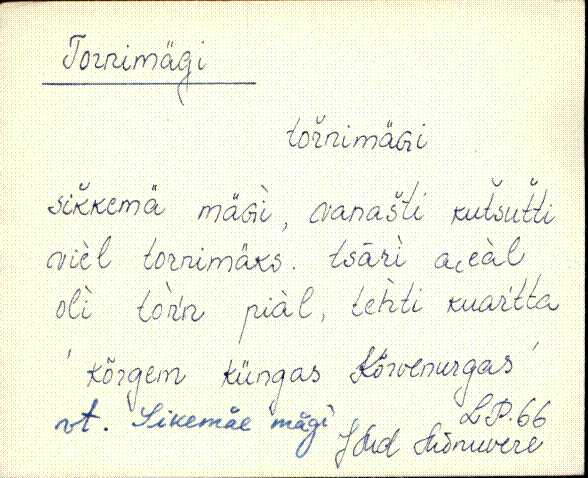 Tornimägi
tořnimäGi
sikkemä mäGì, vanašti kutšutti
vièl tornimäks. tsāri aeàl
olì tòrn piàl, tehti kuartta
'kõrgem küngas Kõrvenurgas'
vt. Sikemäe mägi
LP. 66